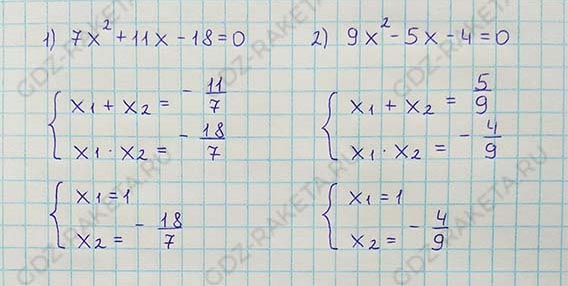 1) 7x² + 11x - 18 = 0
{ x₁ + x₂ = - 11/7
x₁ · x₂ = - 18/7
{ x₁ = 1
x₂ = - 18/7
2) 9x² - 5x - 4 = 0
{ x₁ + x₂ = 5/9
x₁ · x₂ = - 4/9
{ x₁ = 1
x₂ = - 4/9
GDZ-RAKETA.RU